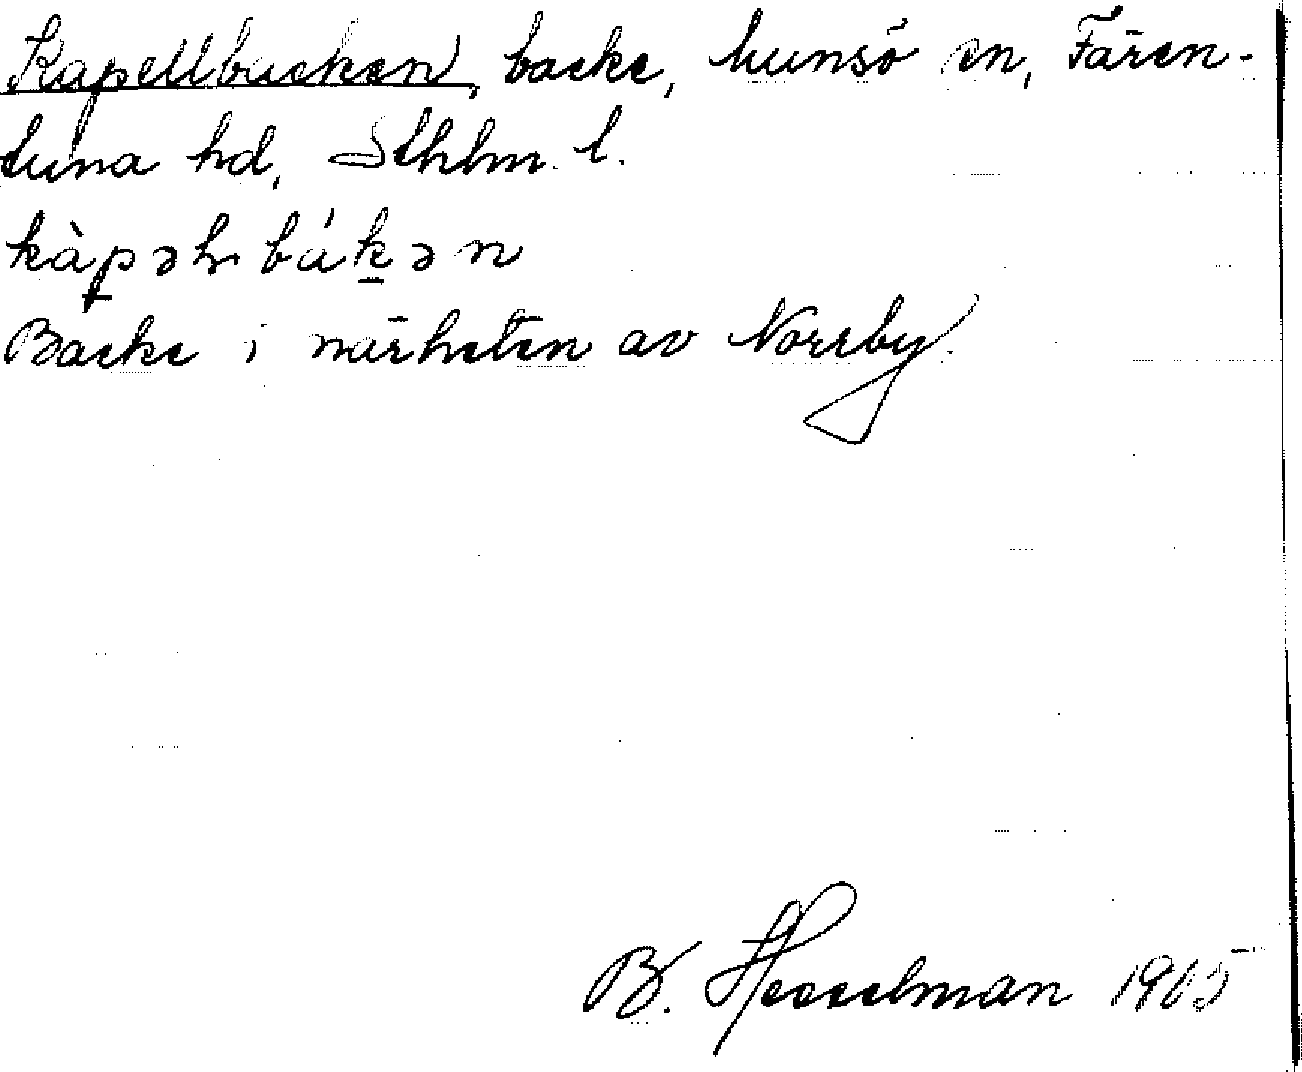 Kapellbacken, backe, Munsö sn, Fären-
tuna hd, Sthlm. l.
Backe i närheten av Norrby.
B. Hesselman 1905